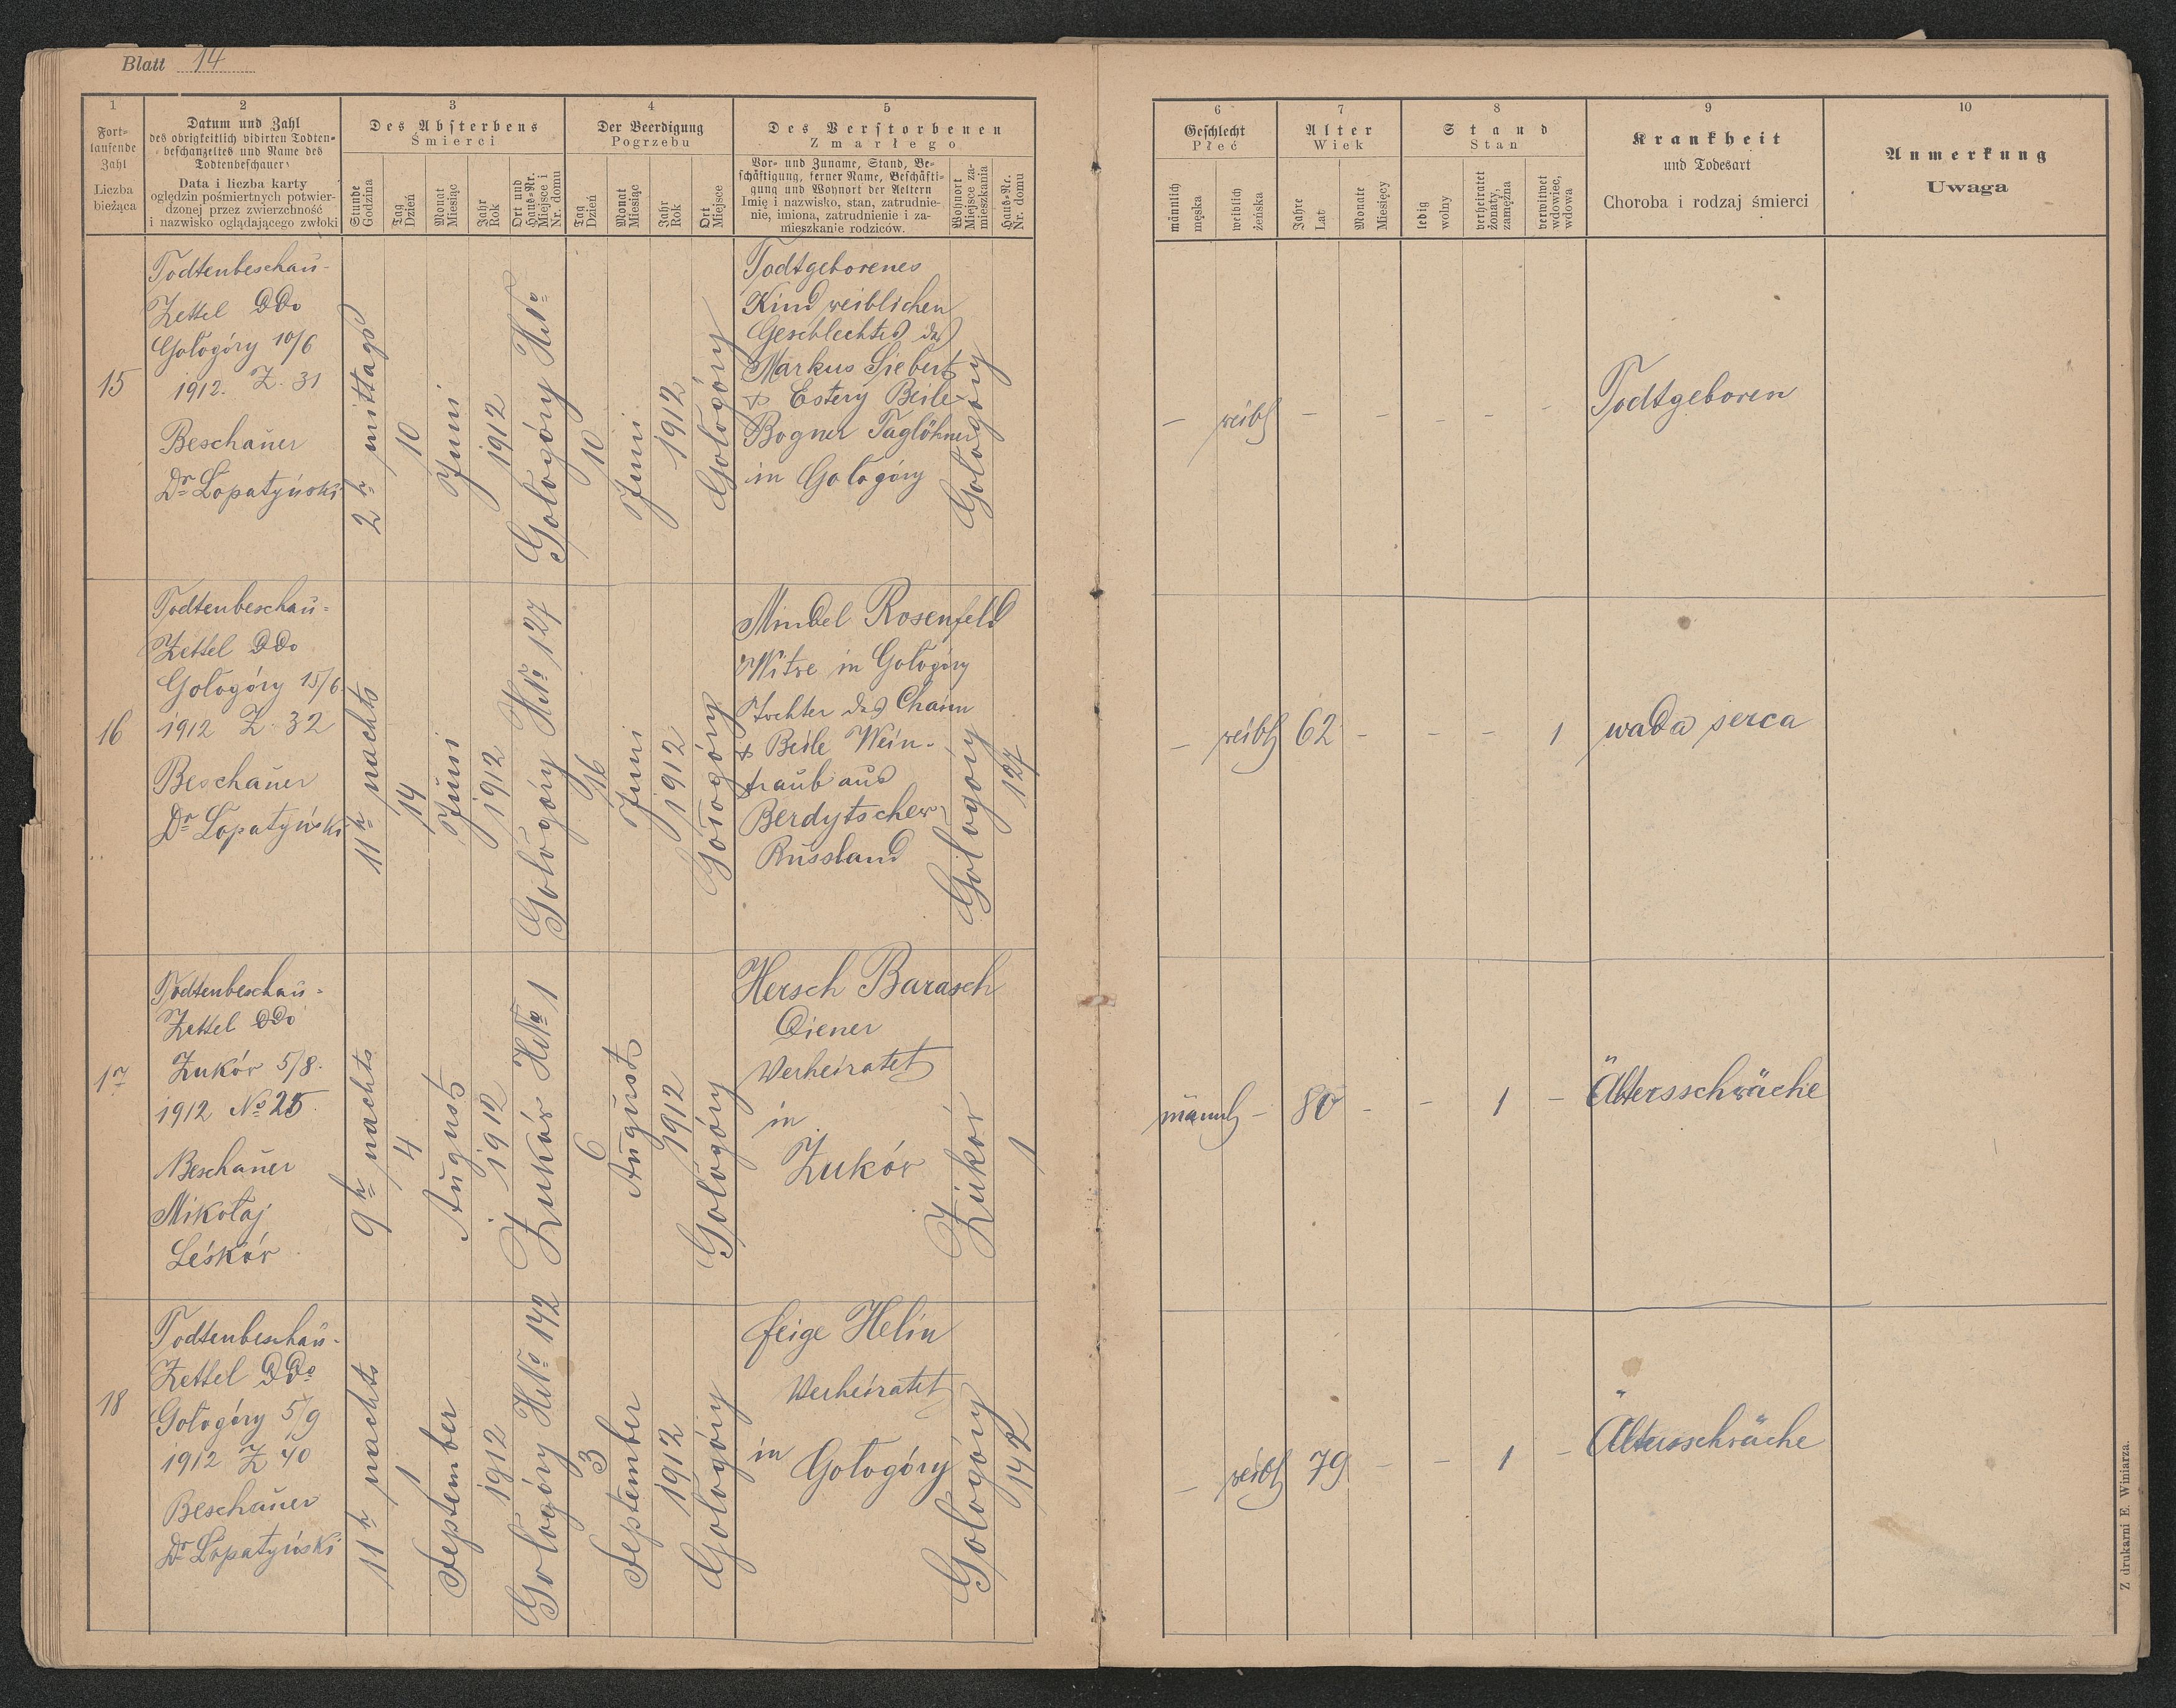 Blatt 14
1
Fort-
laufende
Zahl
Liczba
bieżąca
2
Datum und Zahl
des obrigkeitlich vidirten Todten-
beschauzettes und Name des
Todtenbeschauers
Data i liczba karty
oględzin pośmiertnych potwier-
dzonej przez zwierzchność
i nazwisko oglądającego zwłoki
3
Des Absterbens
Śmierci
Stunde
Godzina
Tag
Dzień
Monat
Miesiąc
Jahr
Rok
Ort und
Haus-Nr.
Miejsce i
Nr. domu
4
Der Beerdigung
Pogrzebu
Tag
Dzień
Monat
Miesiąc
Jahr
Rok
Ort
Miejsce
5
Des Verstorbenen
Zmarłego
Vor- und Zuname, Stand, Be-
schäftigung, ferner Name, Beschäfti-
gung und Wohnort der Aeltern
Imię i nazwisko, stan, zatrudnie-
nie, imiona, zatrudnienie i za-
mieszkanie rodziców.
Wohnort
Miejsce za-
mieszkania
Haus-Nr.
Nr. domu
6
Geschlecht
Płeć
männlich
męska
weiblich
żeńska
7
Alter
Wiek
Jahre
Lat
Monate
Miesięcy
8
Stand
Stan
ledig
wolny
verheiratet
żonaty,
zamężna
verwitwet
wdowiec,
wdowa
9
Krankheit
und Todesart
Choroba i rodzaj śmierci
10
Anmerkung
Uwaga
15
Todtenbeschau-
Zettel DDo
Gołogóry 10/6
1912. Z. 31
Beschauer
Dr Łopatyński
2 h mittags
10
Juni
1912
Gołogóry HNo
10
Juni
1912
Gołogóry
Todtgeborenes
Kind weiblichen
Geschlechtes des
Markus Siebert
+ Estery Beile
Bogner Taglöhner
in Gołogóry
Gołogóry
-
weibl
- - - - -
Todtgeboren
16
Todtenbeschau-
Zettel DDo
Gołogóry 15/6
1912 Z. 32
Beschauer
Dr Łopatyński
11 h nachts
14
Juni
1912
Gołogóry HNo 127
16
Juni
1912
Gołogóry
Mindel Rosenfeld
Witwe in Gołogóry
Tochter des Chaim
+ Beile Wein-
traub aus
Berdytschew
Russland
Gołogóry
127
-
weibl
62
- - -
1
wada serca
17
Todtenbeschau-
Zettel DDo
Żuków 5/8.
1912 No 25.
Beschauer
Mikołaj
Leśków
9 h nachts
4
August
1912
Żuków HNo 1
6
August
1912
Gołogóry
Hersch Barasch
Diener
Verheiratet
in
Żuków
Żuków
1
männl -
80
- -
1
-
Altersschwäche
18
Todtenbeschau-
Zettel DDo
Gołogóry 5/9
1912 Z 40
Beschauer
Dr Łopatyński
11 h nachts
1
September
1912
Gołogóry HNo 142
3
September
1912
Gołogóry
Feige Helin
Verheiratet
in Gołogóry
Gołogóry
142
-
weibl
79
- -
1
-
Altersschwäche
Z drukarni E. Winiarza.